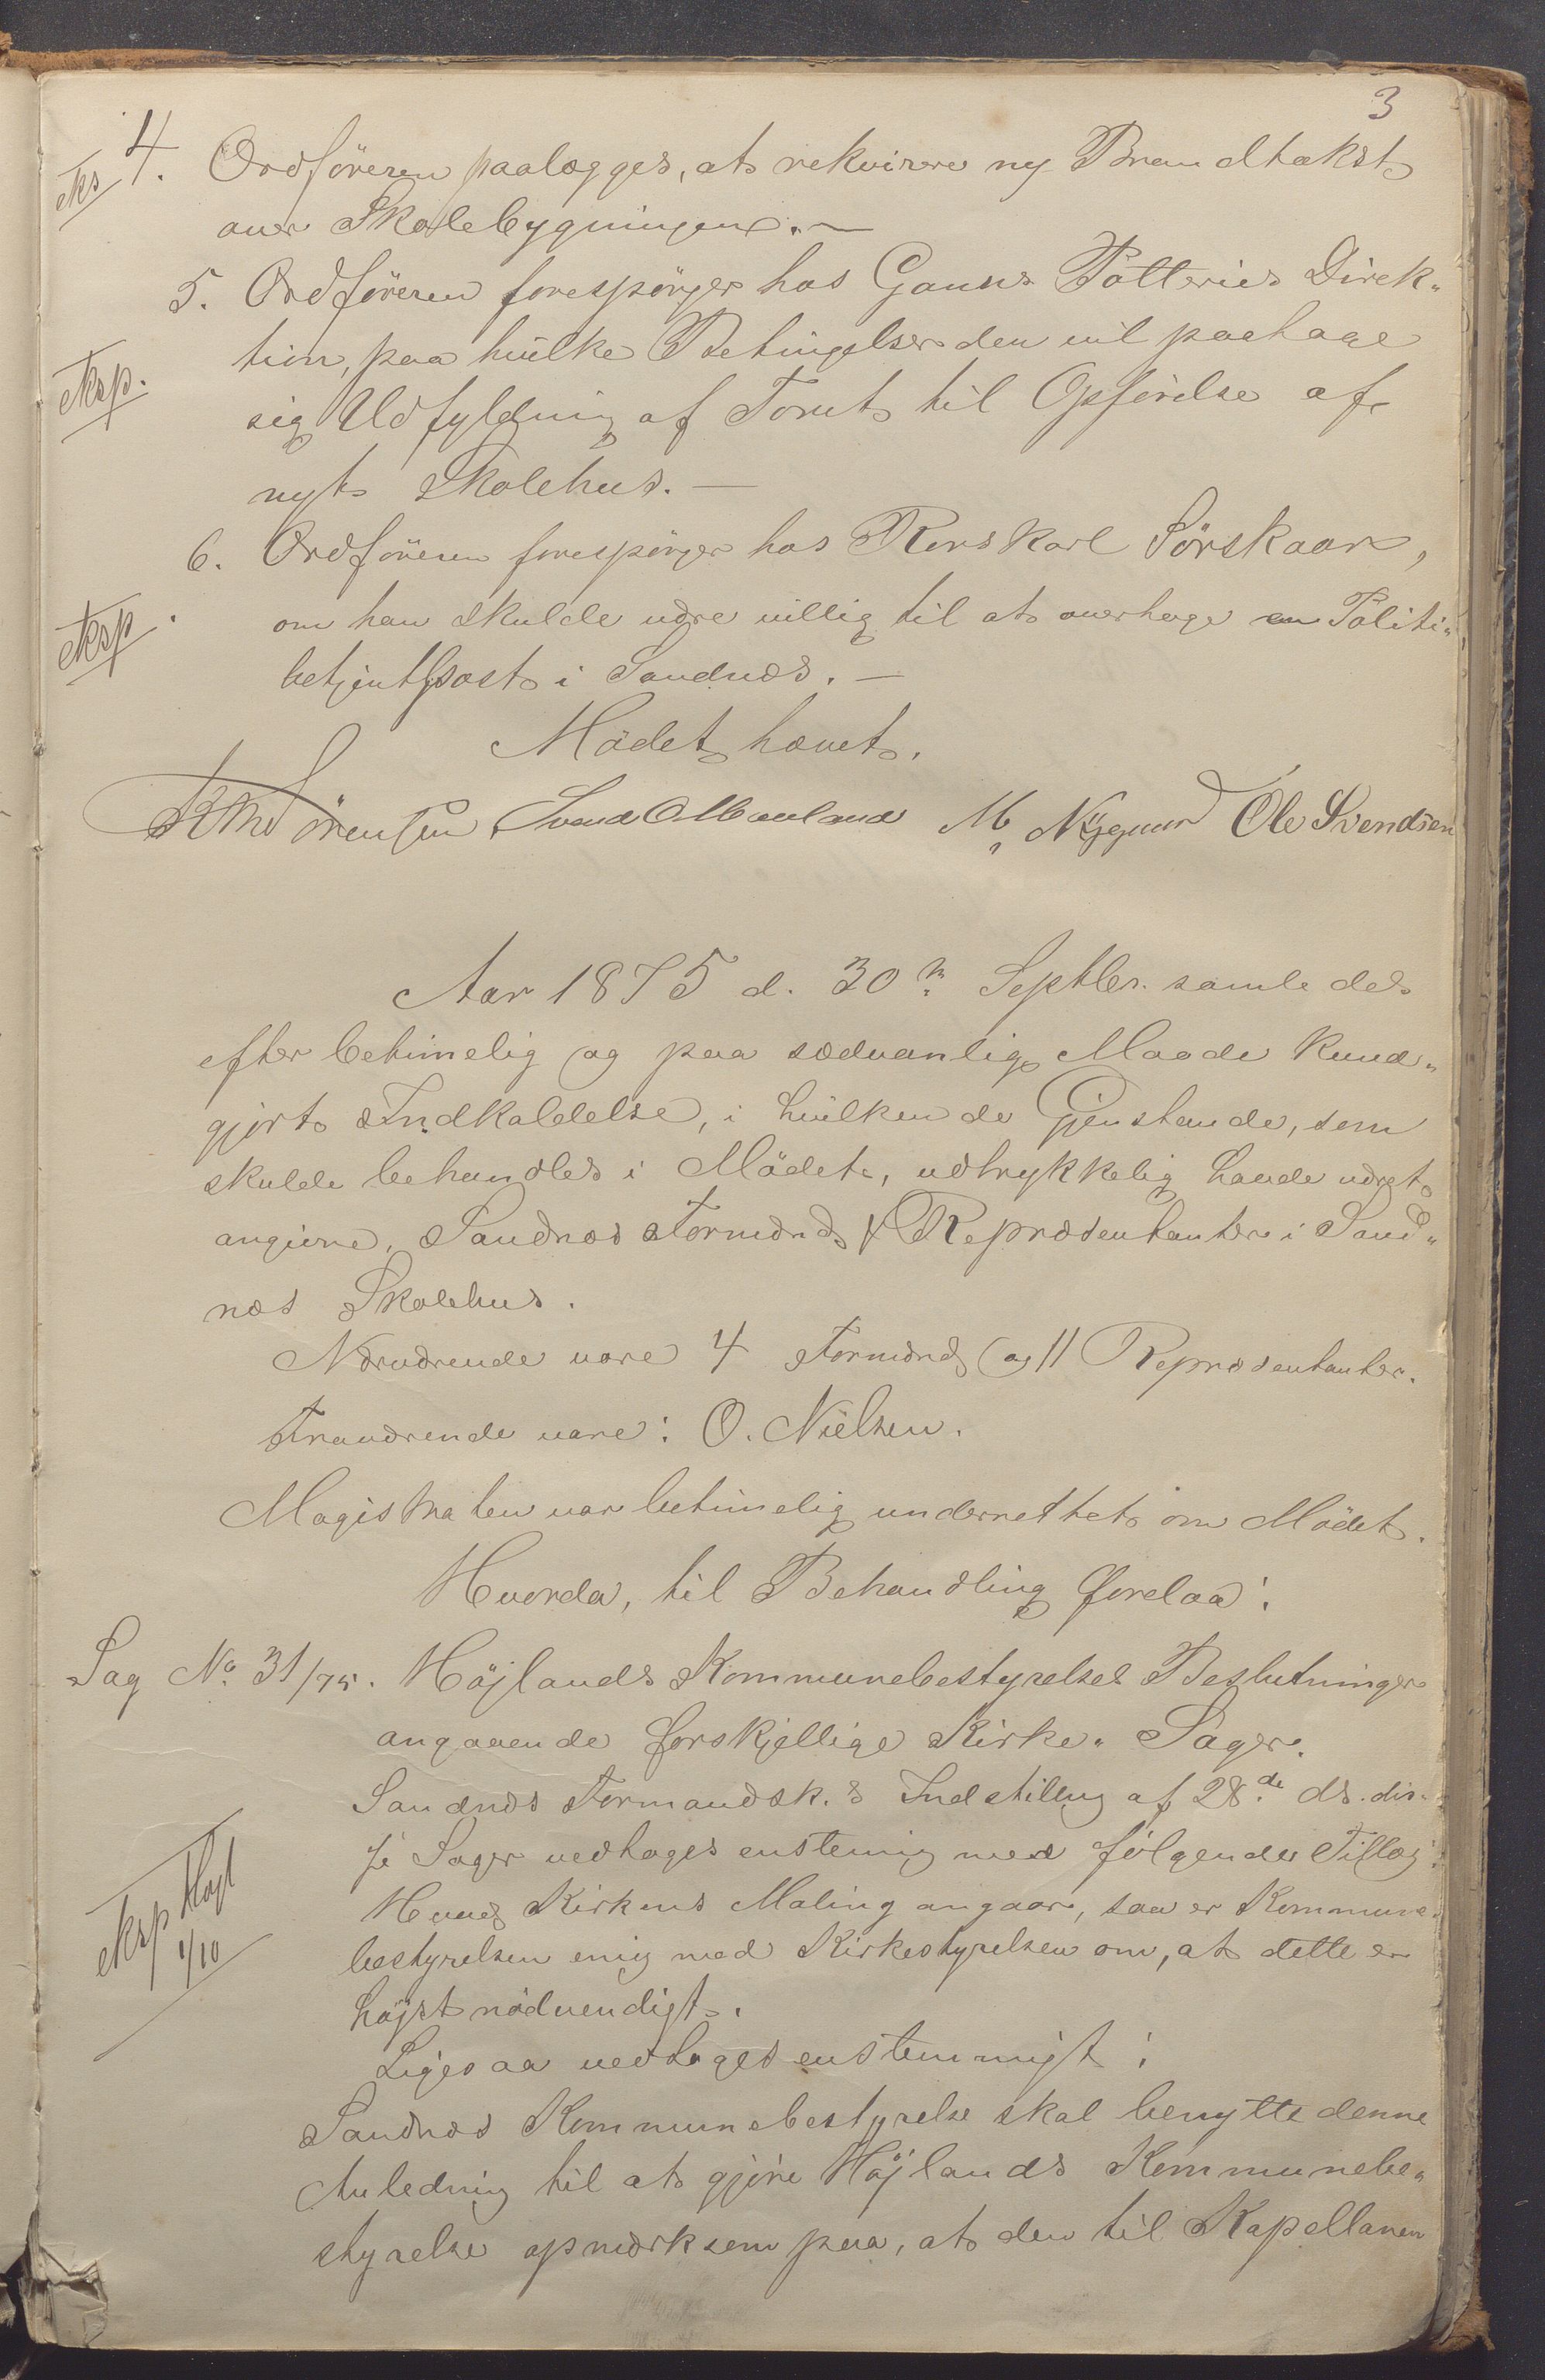 3
eks 4. Ordföreren paalægges, at rekvirere ny Brandtakst
over Skolebygningen. —
5. Ordföreren forespörger hos Ganns Potteries Direk-
tion, paa hvilke Betingelser den vil paatage
eksp.
sig Udfyldning af Tomt til Opförelse af
nyt Skolehus. —
6. Ordföreren forespörger hos Rorskarl Sörskaar,
eksp.
om han skulde være villig til at overtage en Politi-
betjentpost i Sandnæs. —
Mödet hævet.
Sörensen Svend M. Nygaard Ole Svendsen
Aar 1875 d. 30te Septbr. samledes
efter betimelig og paa sædvanlig Maade kund-
gjort Indkaldelse, i hvilken de Gjenstande, som
skulde behandles i Mödet, udtrykkelig havde været
angivne, Sandnæs Formænd & Repræsentanter i Sand-
næs Skolehus.
Nærværende vare 4 Formænd og 11 Repræsentanter.
Fraværende vare: O. Nielsen.
Magistraten var betimelig underrettet om Mödet.
Hvorda, til Behandling forelaa:
Sag No. 31/75. Höjlands Kommunebestyrelses Beslutninger
angaaende forskjellige Kirke-Sager.
Sandnæs Formandsk.s Indstilling af 28de ds. dis-
se Sager vedtages enstemig med fölgende Tillæg:
eksp Højl
1/10
Hvad Kirkens Maling angaar, saa er Kommune-
bestyrelsen enig med Kirkestyrelsen om, at dette er
höjst nödvendigt.
Ligesaa vedtages enstemmigt:
Sandnæs Kommunebestyrelse skal benytte denne
Anledning til at gjöre Höjlands Kommunebe-
styrelse opmærksom paa, at den til Kapellanen